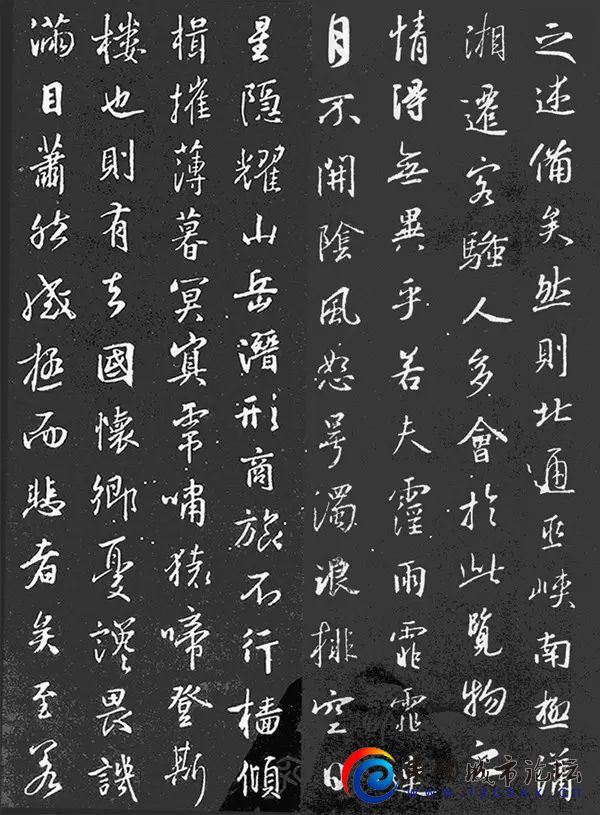 之述備矣然則北通巫峽南極瀟
湘遷客騷人多會於此覽物之
情得無異乎若夫霪雨霏霏連
月不開陰風怒号濁浪排空日
星隱耀山岳潛形商旅不行檣傾
楫摧薄暮冥冥虎嘯猿啼登斯
樓也則有去國懷鄉憂讒畏譏
滿目蕭然感極而悲者矣至若
城市论坛